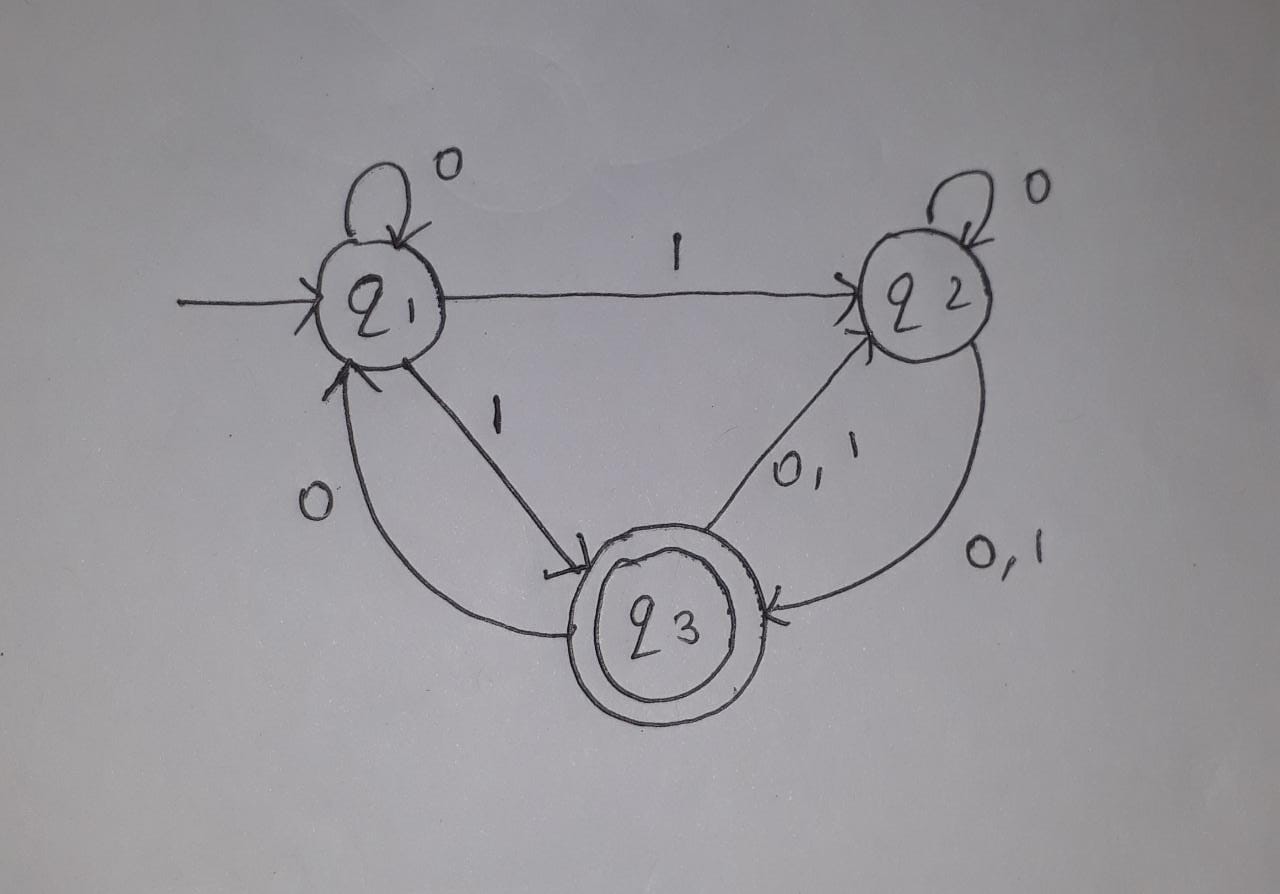 0
0
1
q1
q2
1
0, 1
0
0, 1
q3